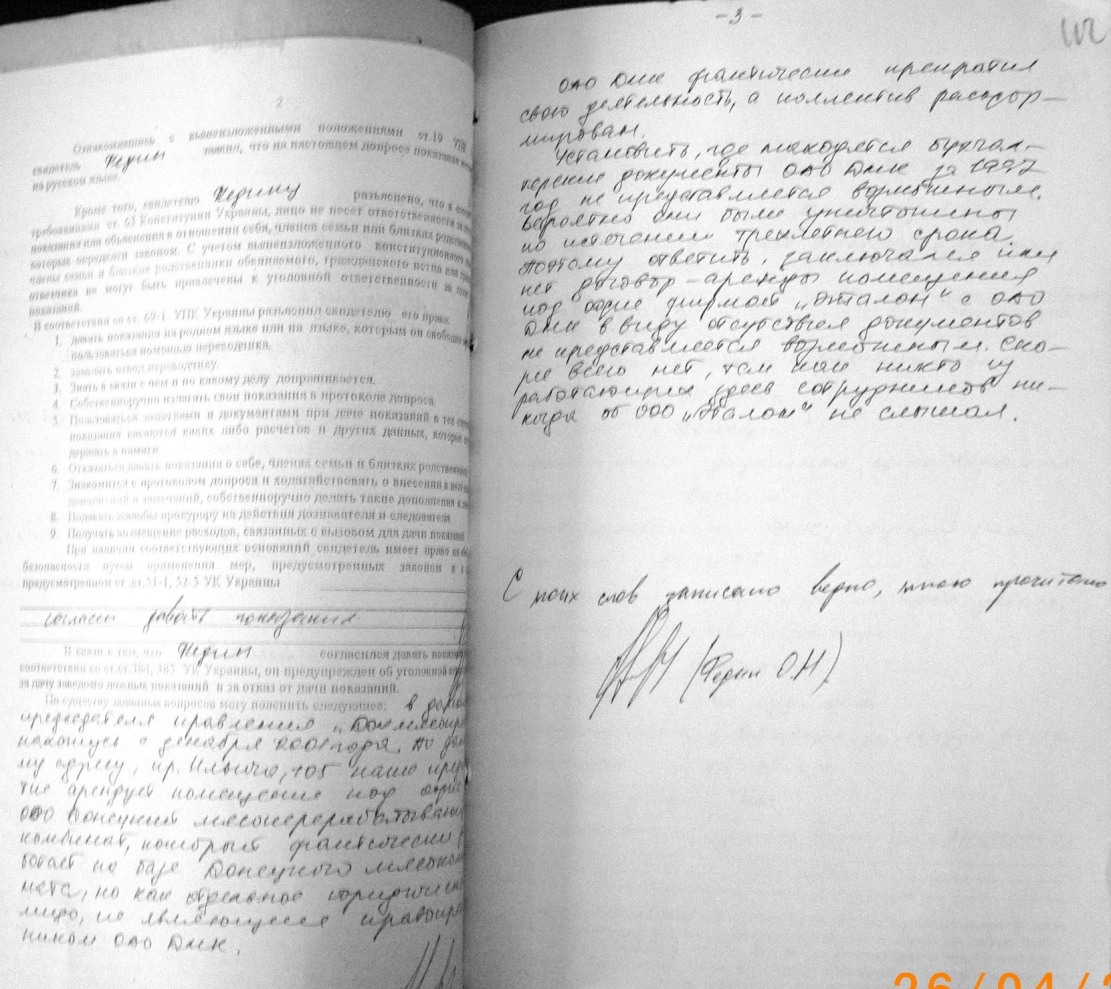 2
Ознакомившись с вышеизложенными положениями ст.19 УПК
свидетель Федин заявил, что на настоящем допросе показания
на русском языке.
Кроме того, свидетелю Федину разъяснено, что в
требованиями ст. 63 Конституции Украины, лицо не несет ответственности за
показания или объяснения в отношении себя, членов семьи или близких
которых определен законом. С учетом вышеизложенного конституционного
члены семьи и близкие родственники обвиняемого, гражданского истца или
ответчика не могут быть привлечены к уголовной ответственности за
показаний.
В соответствии со ст. 69-1 УПК Украины разъяснил свидетелю его права:
1. давать показания на родном языке или на языке, которым он свободно
пользоваться помощью переводчика.
2. заявлять отвод переводчику.
3. Знать в связи с чем и по какому делу допрашивается.
4. Собственноручно излагать свои показания в протоколе допроса.
5. Пользоваться заметками и документами при даче показаний в тех
показания касаются каких либо расчетов и других данных, которые
держать в памяти.
6. Отказаться давать показания о себе, членах семьи и близких
7. Знакомится с протоколом допроса и ходатайствовать о внесении в него
дополнений и замечаний, собственноручно делать такие дополнения и
8. Подавать жалобы прокурору на действия дознавателя и следователя
9. Получать возмещение расходов, связанных с вызовом для дачи показаний.
При наличии соответствующих оснований свидетель имеет право на
безопасности путем применения мер, предусмотренных законом и в
предусмотренном ст.ст.51-1, 52-5 УК Украины
согласен давать показания
В связи с тем, что Федин согласился давать
соответствии со ст.ст.384, 385 УК Украины, он предупрежден об уголовной
за дачу заведомо ложных показаний и за отказ от дачи показаний.
По существу заданных вопросов могу пояснить следующее: в
председателя правления
нахожусь с декабря 2001 года. По
му адресу, пр. Ильича, 105 наше
тие арендует помещение под
ОАО Донецкий мясоперерабатывающий
комбинат, который фактически
ботает на базе Донецкого
ната, но как отдельное юридическое
лицо, не являющееся
ником ОАО ДМК.
-3-
ОАО ДМК фактически прекратил
свою деятельность, а коллектив расфор-
мирован.
Установить, где находятся бухгал-
терские документы ОАО ДМК за 1997
год не представляется возможным.
Вероятно они были уничтожены
по истечении трехлетнего срока.
Поэтому ответить, заключался или
нет договор аренды помещения
под офис фирмой „Эталон" с ОАО
ДМК в виду отсутствия документов
не представляется возможным. Ско-
рее всего нет, так как никто из
работающих здесь сотрудников ни-
когда об ООО „Эталон" не слышал.
С моих слов записано верно, мною прочитано
(Федин О.Н)